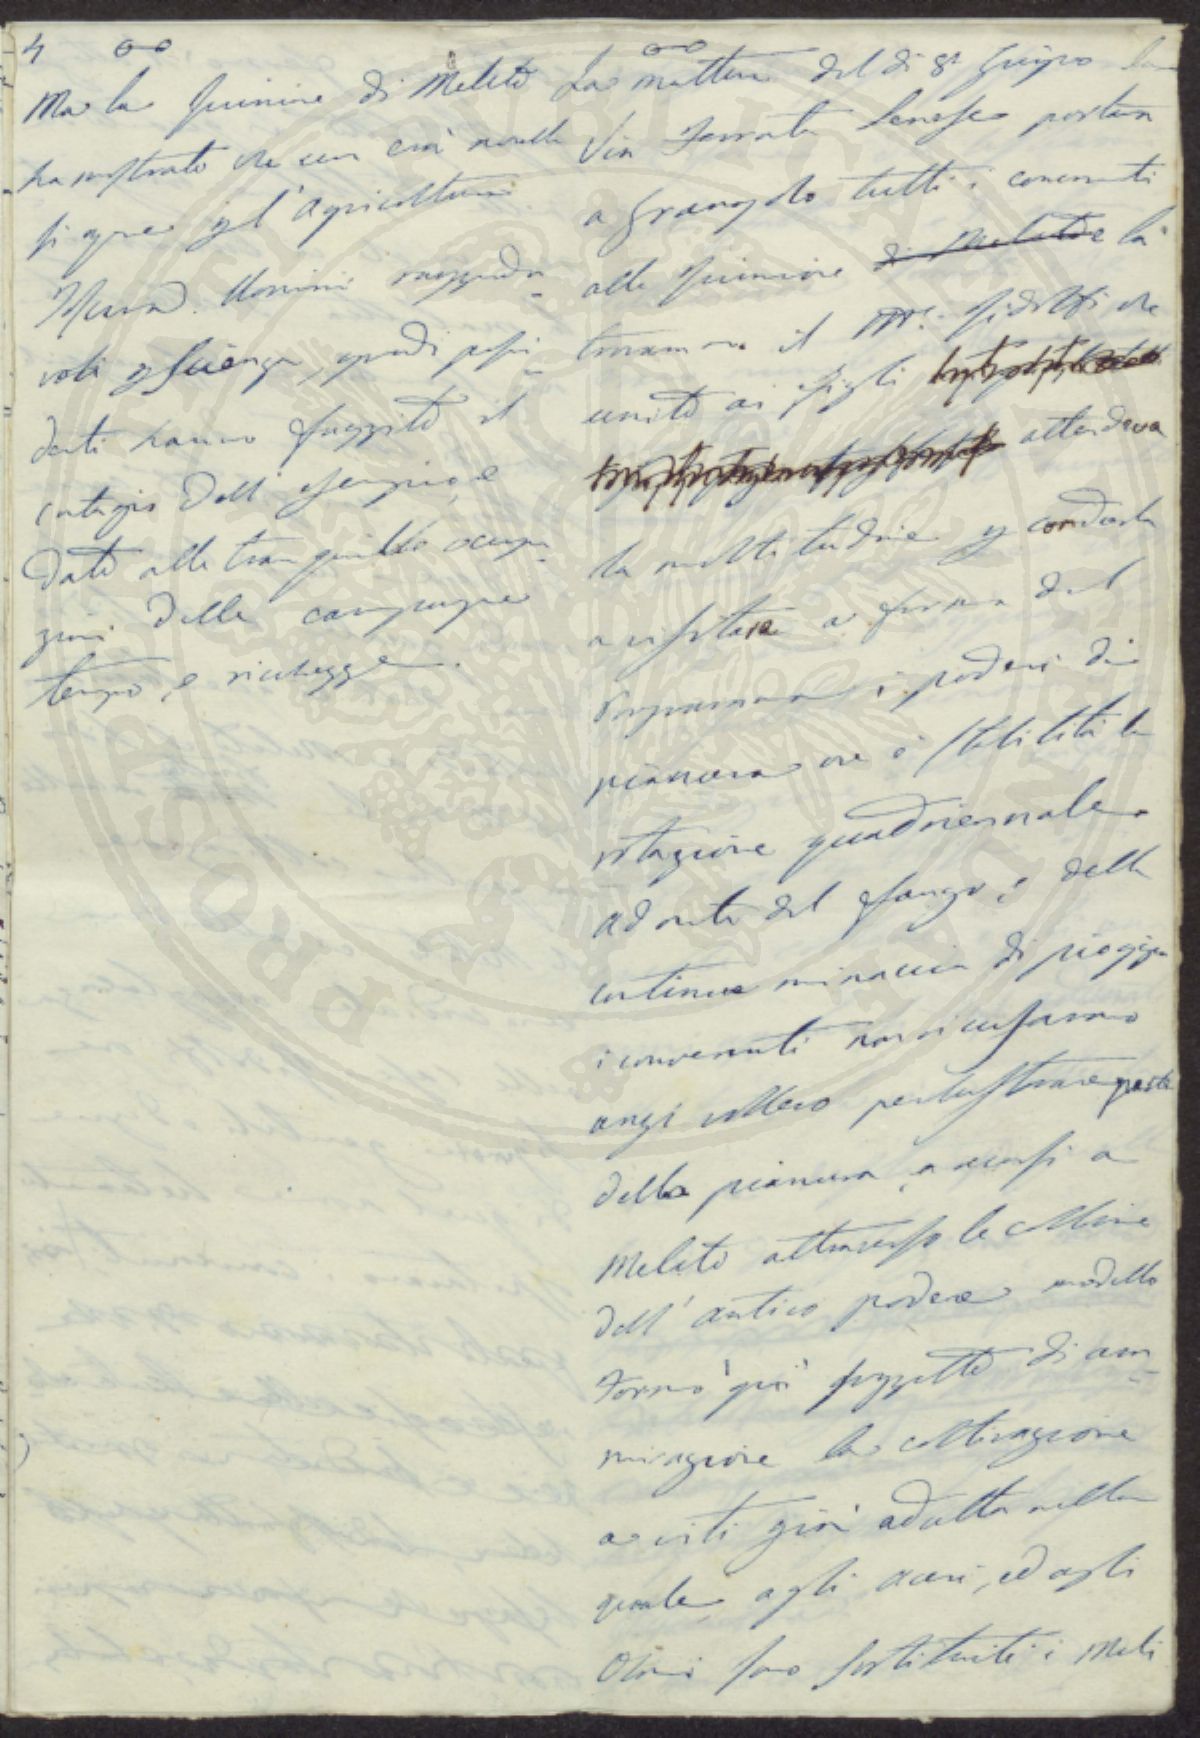 4
Ma la riunione di Meleto
ha mostrato che una era novella
si apre per l'Agricoltura
Toscana. Uomini ragguarde-
voli per scienza, grandi possi-
denti hanno fuggito il
contagio dell'esempio, e
dato alle tranquille occupa-
zioni della campagna
tempo, e ricchezze.
La mattina del dì 8 Giugno la
Via Ferrata Senese portava
a Granajolo tutti i concorrenti
alla riunione di Meleto là
trovarono il Mse. Ridolfi che
unito ai figli
attendeva
la moltitudine per condurla
a visitare a forma del
Programma i poderi di
pianura ove è stabilita la
rotazione quadriennale.
Ad onta del fango, e della
continua minaccia di pioggia
i convenuti non ricusarono
anzi vollero perlustrare parte
della pianura, e recarsi a
Meleto attraverso le colline
dell'antico podere modello
Formò qui soggetto di am-
mirazione la coltivazione
a viti già adulta nella
quale agli aceri, ed agli
Olmi sono sostituiti i Meli